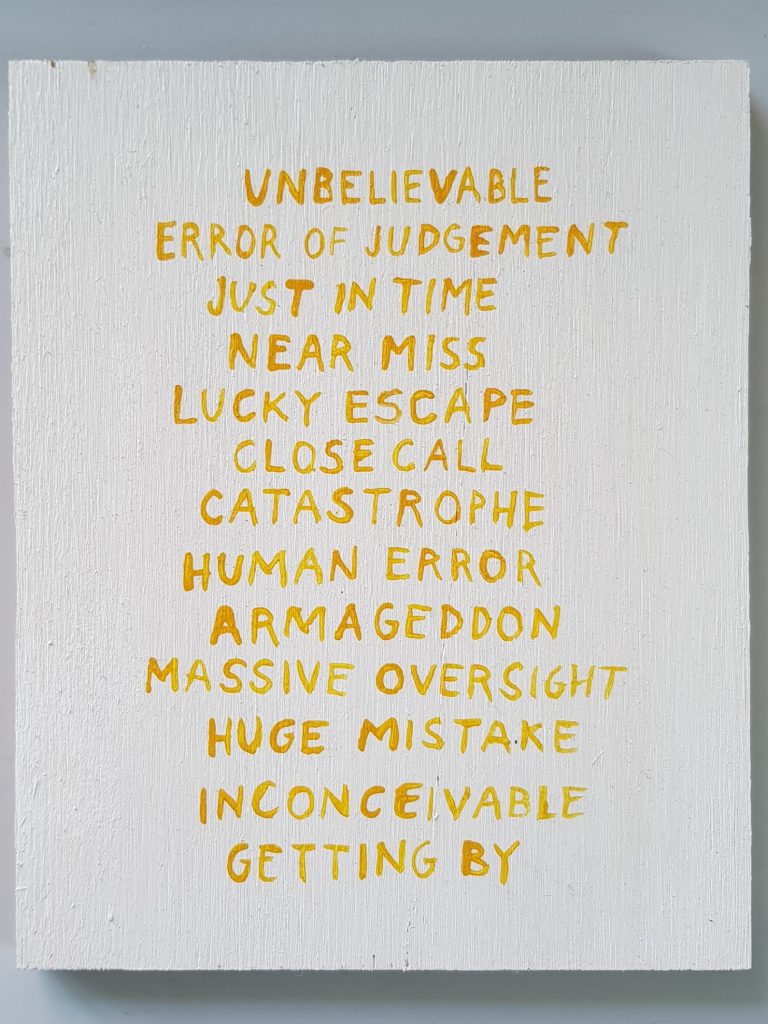 UNBELIEVABLE
ERROR OF JUDGEMENT
JUST IN TIME
NEAR MISS
LUCKY ESCAPE
CLOSE CALL
CATASTROPHE
HUMAN ERROR
ARMAGEDDON
MASSIVE OVERSIGHT
HUGE MISTAKE
INCONCEIVABLE
GETTING BY